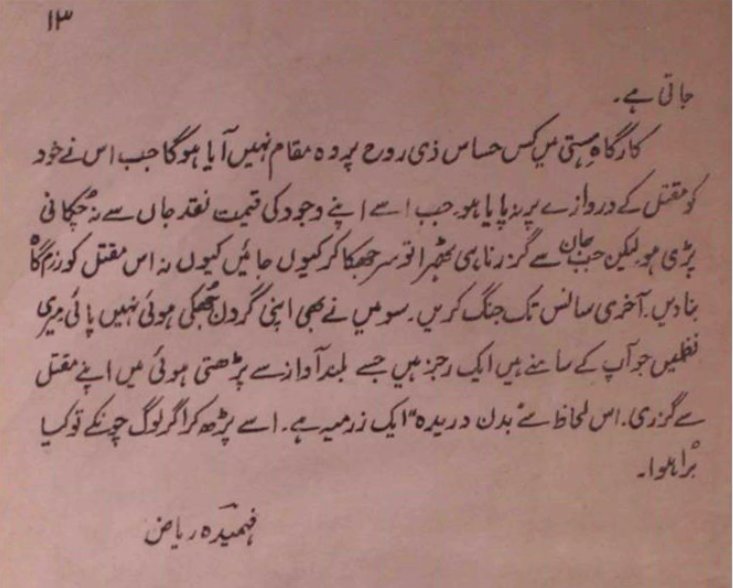 ۱۳
جاتی ہے۔
کارگاہِ ہستی میں کس حساس ذی روح پر وہ مقام نہیں آیا ہوگا جب اس نے خود
کو مقتل کے دروازے پر نہ پایا ہو۔ جب اسے اپنے وجود کی قیمت نقد جاں سے نہ چکانی
پڑی ہو لیکن جب جان سے گزرنا ہی ٹھہرا تو سر جھکا کر کیوں جائیں کیوں نہ اس مقتل کو رزم گاہ
بنا دیں۔ آخری سانس تک جنگ کریں۔ سو میں نے بھی اپنی گردن جھکی ہوئی نہیں پائی میری
نظمیں جو آپ کے سامنے ہیں ایک رجز ہیں جسے بلند آواز سے پڑھتی ہوئی میں اپنے مقتل
سے گزری۔ اس لحاظ سے "بدن دریدہ" ایک رزمیہ ہے۔ اسے پڑھ کر اگر لوگ چونکے تو کیا
برا ہوا۔
فہمیدہ ریاض